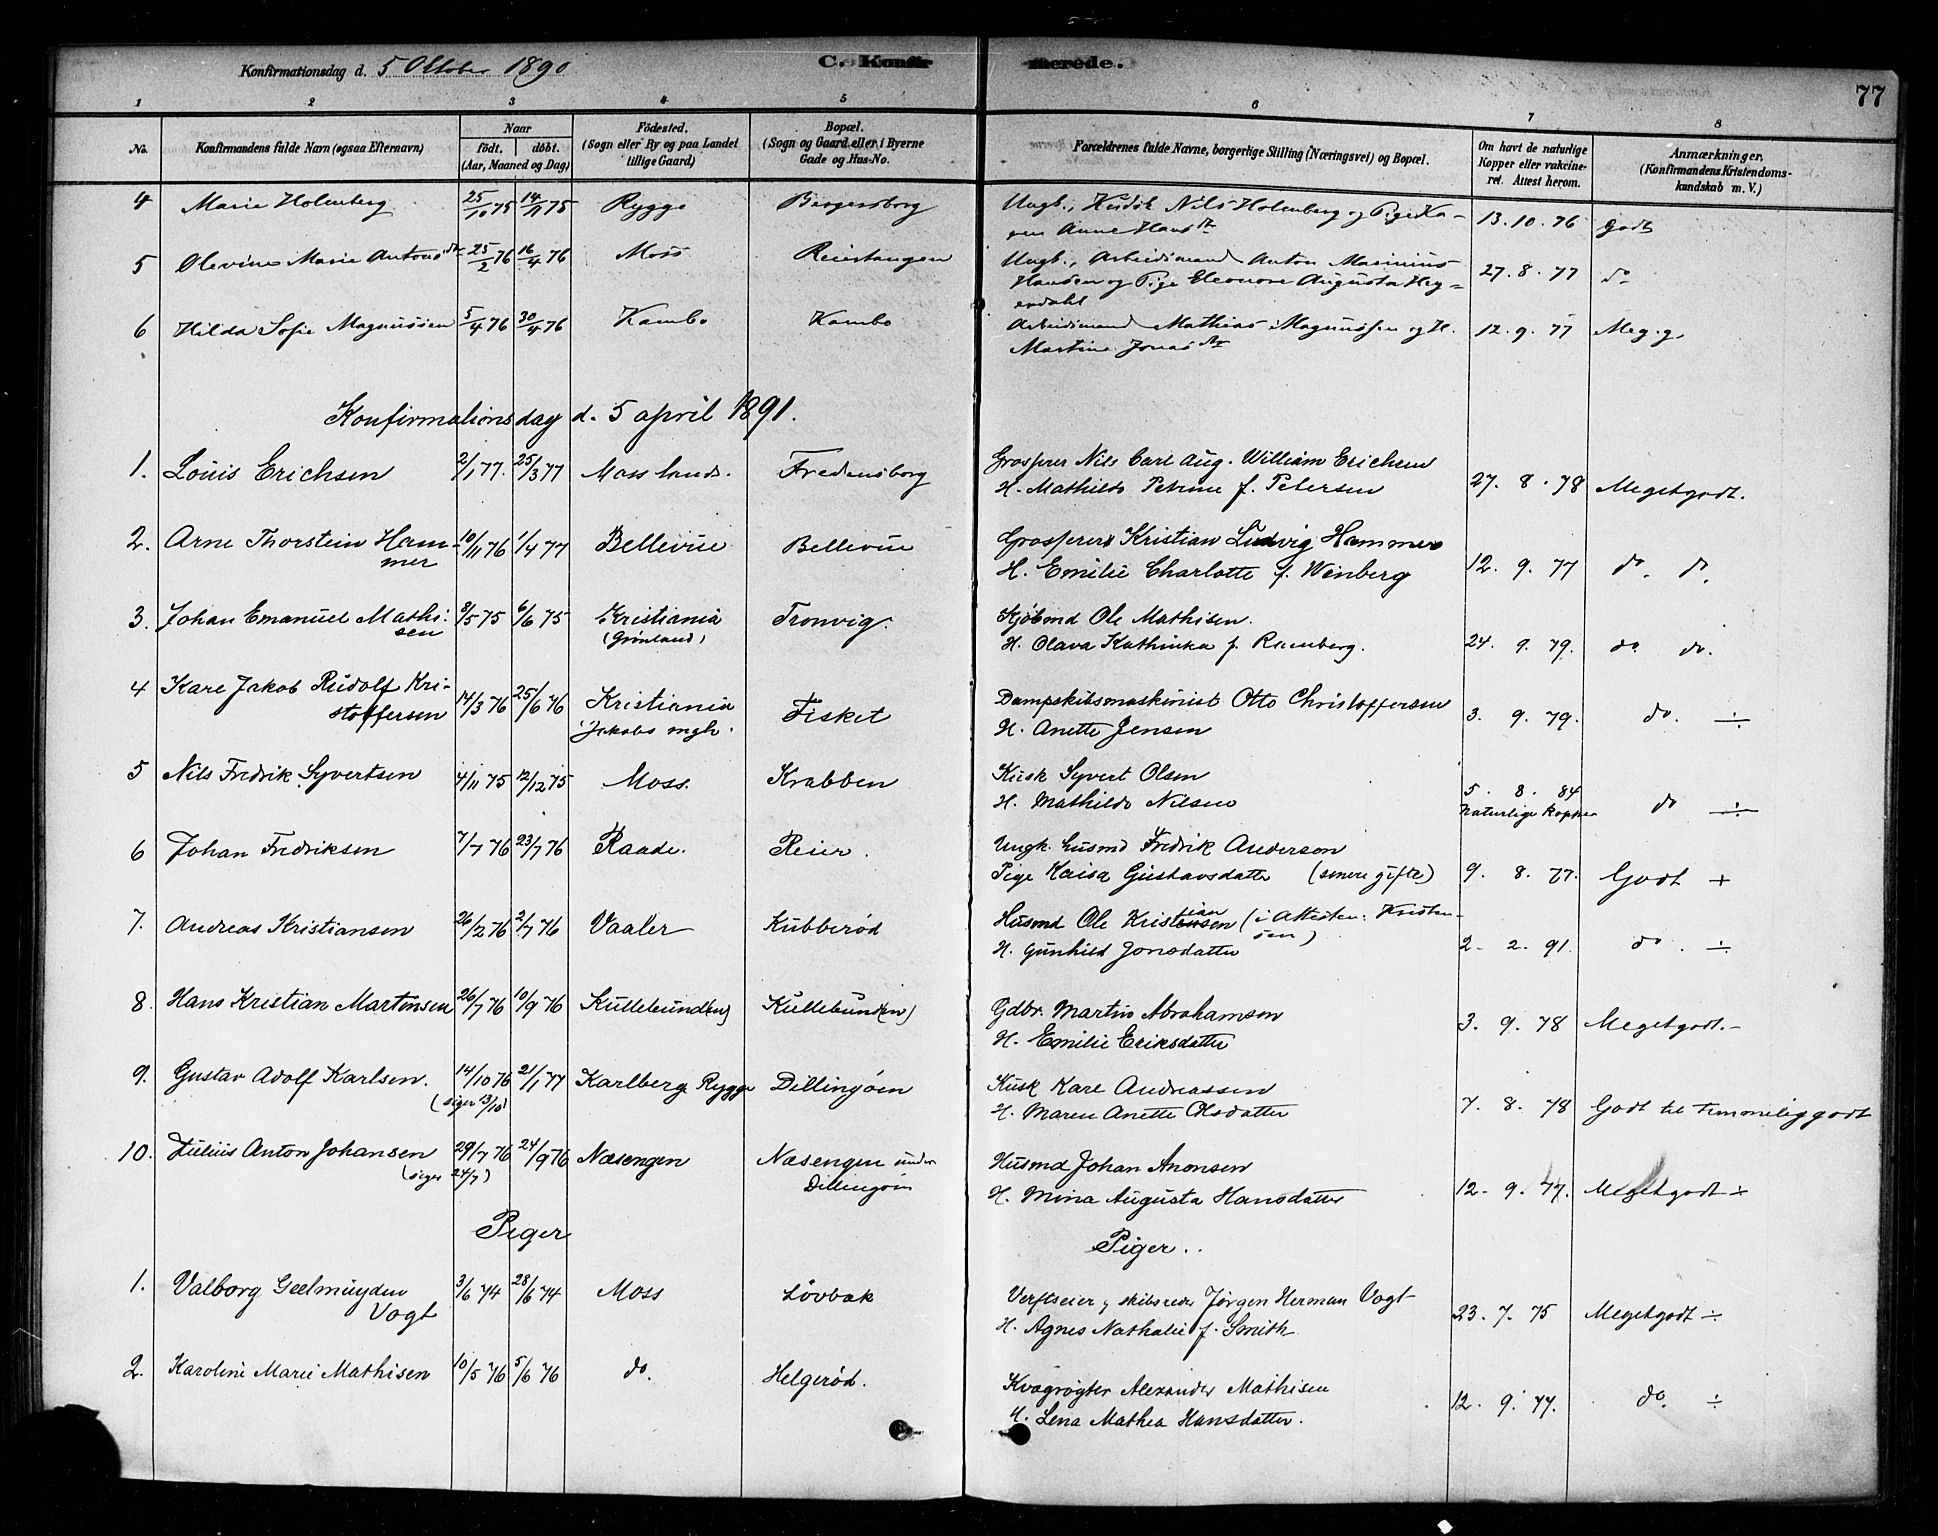 Konfirmationsdag d. 5 Oktober 1890
C. Konfirmerede.
77
1 2 3 4 5 6 7 8
No. Konfirmandens fulde Navn (ogsaa Efternavn) Naar født. døbt. (Aar, Maaned og Dag) Fødested. (Sogn eller By og paa Landet tillige Gaard) Bopæl. (Sogn og Gaard eller i Byerne Gade og Hus-No. Forældrenes fulde Navne, borgerlige Stilling (Næringsvei) og Bopæl. Om havt de naturlige Kopper eller vakcineret. Attest herom. Anmærkninger. (Konfirmandens Kristendomskundskab m. V.)
4 Marie Holenberg 25/10 75 14/11 75 Rygge Bergersborg Ungk., Kudsk Nils Holenberg og Pige Ka-
ren Anne Hansdtr 13. 10. 76 Godt
5 Olevine Marie Antonsdtr 25/2 76 16/4 76 Moss Reiertangen Ungk., Arbeidsmand Anton Marinius
Hansen og Pige Eleonore Augusta Hey=
erdahl 27. 8. 77 do
6 Hilda Sofie Magnussen 5/4 76 30/4 76 Kambo Kambo Arbeidsmand Mathias Magnussen og H.
Martine Jonasdtr 12. 9. 77 Meg. g.
Konfirmationsdag d. 5 april 1891.
1. Louis Erichsen 2/1 77. 25/3 77 Moss lands. Fredensborg Grosserer Nils Carl Aug. William Erichsen
H. Mathilde Petrine f. Petersen 27. 8. 78 Megetgodt.
2. Arne Thorstein Ham-
mer 10/11 76 1/4 77 Bellevue Bellevue Grosserer Kristian Ludvig Hammer
H. Emilie Charlotte f. Winberg 12. 9. 77 do. do.
3. Johan Emanuel Mathi-
sen 8/5 75 6/6 75 Kristiania
(Grønland) Tronvig. Kjøbmd Ole Mathisen.
H. Olava Kathinka f. Ramberg. 24. 9. 79. do. do.
4 Karl Jakob Rudolf Kri-
stoffersen 14/3 76 25/6 76 Kristiania
Jakobs mgh. Fisket Dampskibsmaskinist Otto Christoffersen
H. Anette Jensen 3. 9. 79. do. ÷
5 Nils Fredrik Syvertsen 4/11 75 12/12 75 Moss. Krabben Kusk Syvert Olsen
H. Mathilde Nilsen 5. 8. 84
Naturlige kopper do ÷
6 Johan Fredriksen 7/7 76 23/7 76 Raade. Reier. Ungk. husmd Fredrik Anderson
Pige Kaisa Gustavsdatter (senere gifte) 9. 8. 77. Godt +
7. Andreas Kristiansen 26/2 76 2/7 76 Vaaler Kubberød Husmd Ole Kristiansen (i Attesten: Kristen-
sen)
H. Gunhild Jonsdatter 2. 2. 91. do. ÷
8. Hans Kristian Martinsen 26/7 76 10/9 76 Kullebund(en) Kullebund(en) Gdbr. Martin Abrahamsen
H. Emilie Eriksdatter 3. 9. 78 Megetgodt. -
9. Gustav Adolf Karlsen. 14/10 76 21/1 77 Karlberg Rygge Dillingøen Kusk Karl Andreassen
(siger 13/10) H. Maren Anette Olsdatter 7. 8. 78 Godt til temmelig godt
10. Julius Anton Johansen 29/7 76 24/9 76 Næsengen Næsengen under
Dillingøen
(siger 24/7) Husmd Johan Anonsen
H. Mina Augusta Hansdatter 12. 9. 77. Megetgodt ÷
Piger Piger.
1. Valborg Geelmuyden
Vogt 3/6 74 28/6 74 Moss Løvbak Verftseier og skibsreder Jørgen Herman Vogt
H. Agnes Nathalie f. Smith 23. 7. 75 Megetgodt ÷
2. Karoline Marie Mathisen 10/5 76 5/6 76 do. Helgerød. Kvægrøgter Alexander Mathisen
H. Lena Mathea Hansdatter. 12. 9. 77. do. ÷